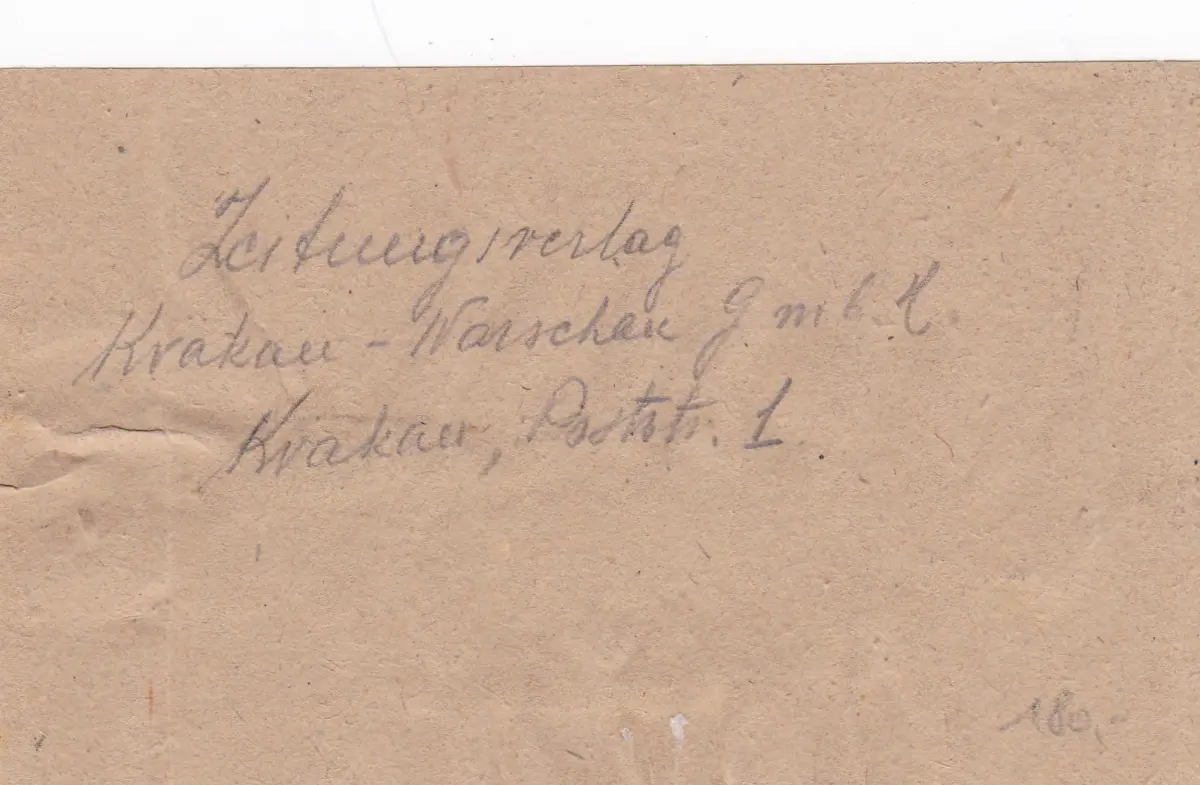 Zeitungsverlag
Krakau - Warschau G m b. H.
Krakau, Poststr. 1.
180,-